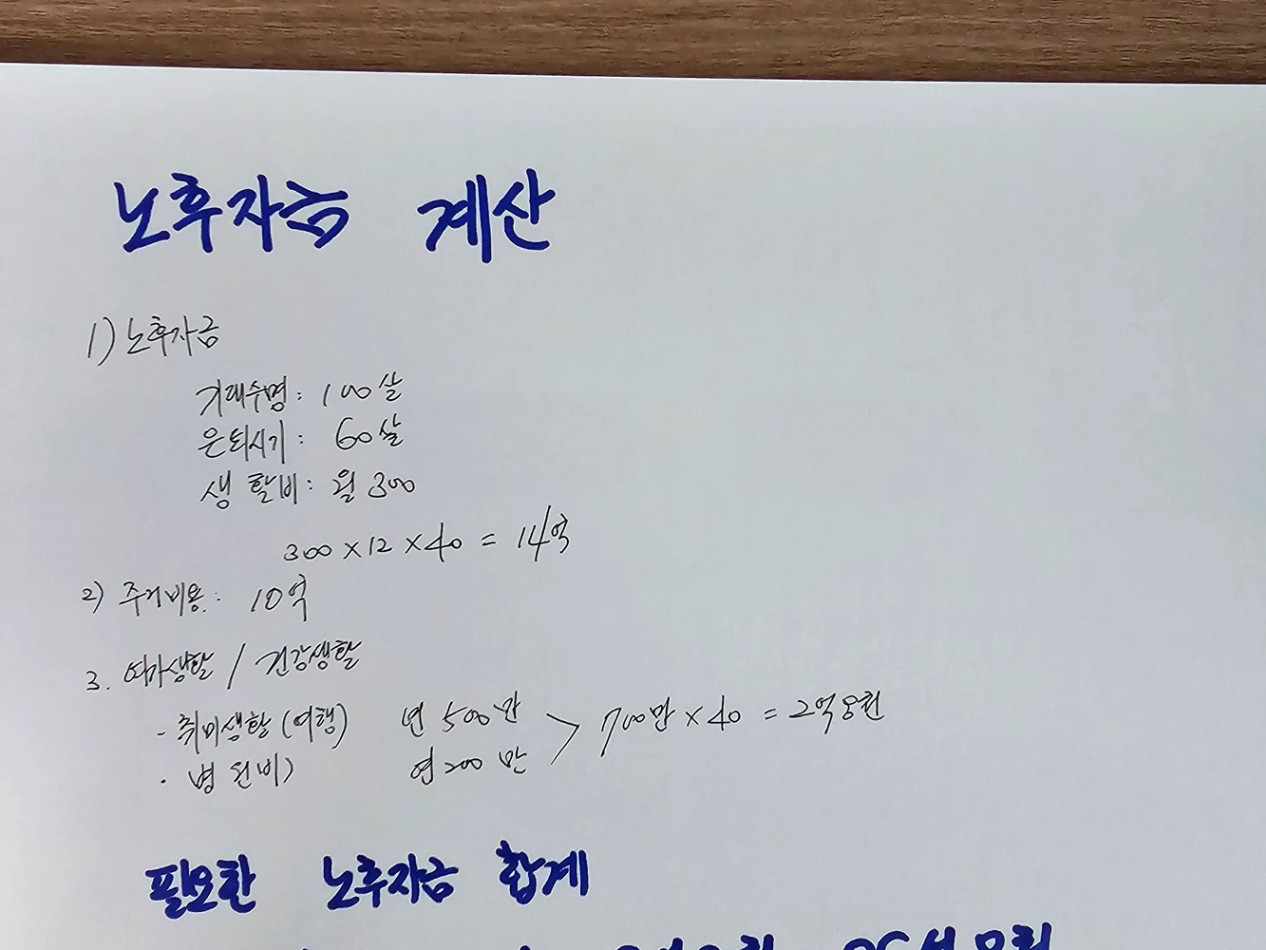 노후자금 계산
1) 노후자금
기대수명: 100살
은퇴시기: 60살
생활비: 월 300
300 x 12 x 40 = 14억
2) 주거비용: 10억
3. 여가생활 / 건강생활
- 취미생활 (여행) 년 500만 > 700만 x 40 = 2억8천
· 병원비) 연 200만
필요한 노후자금 합계